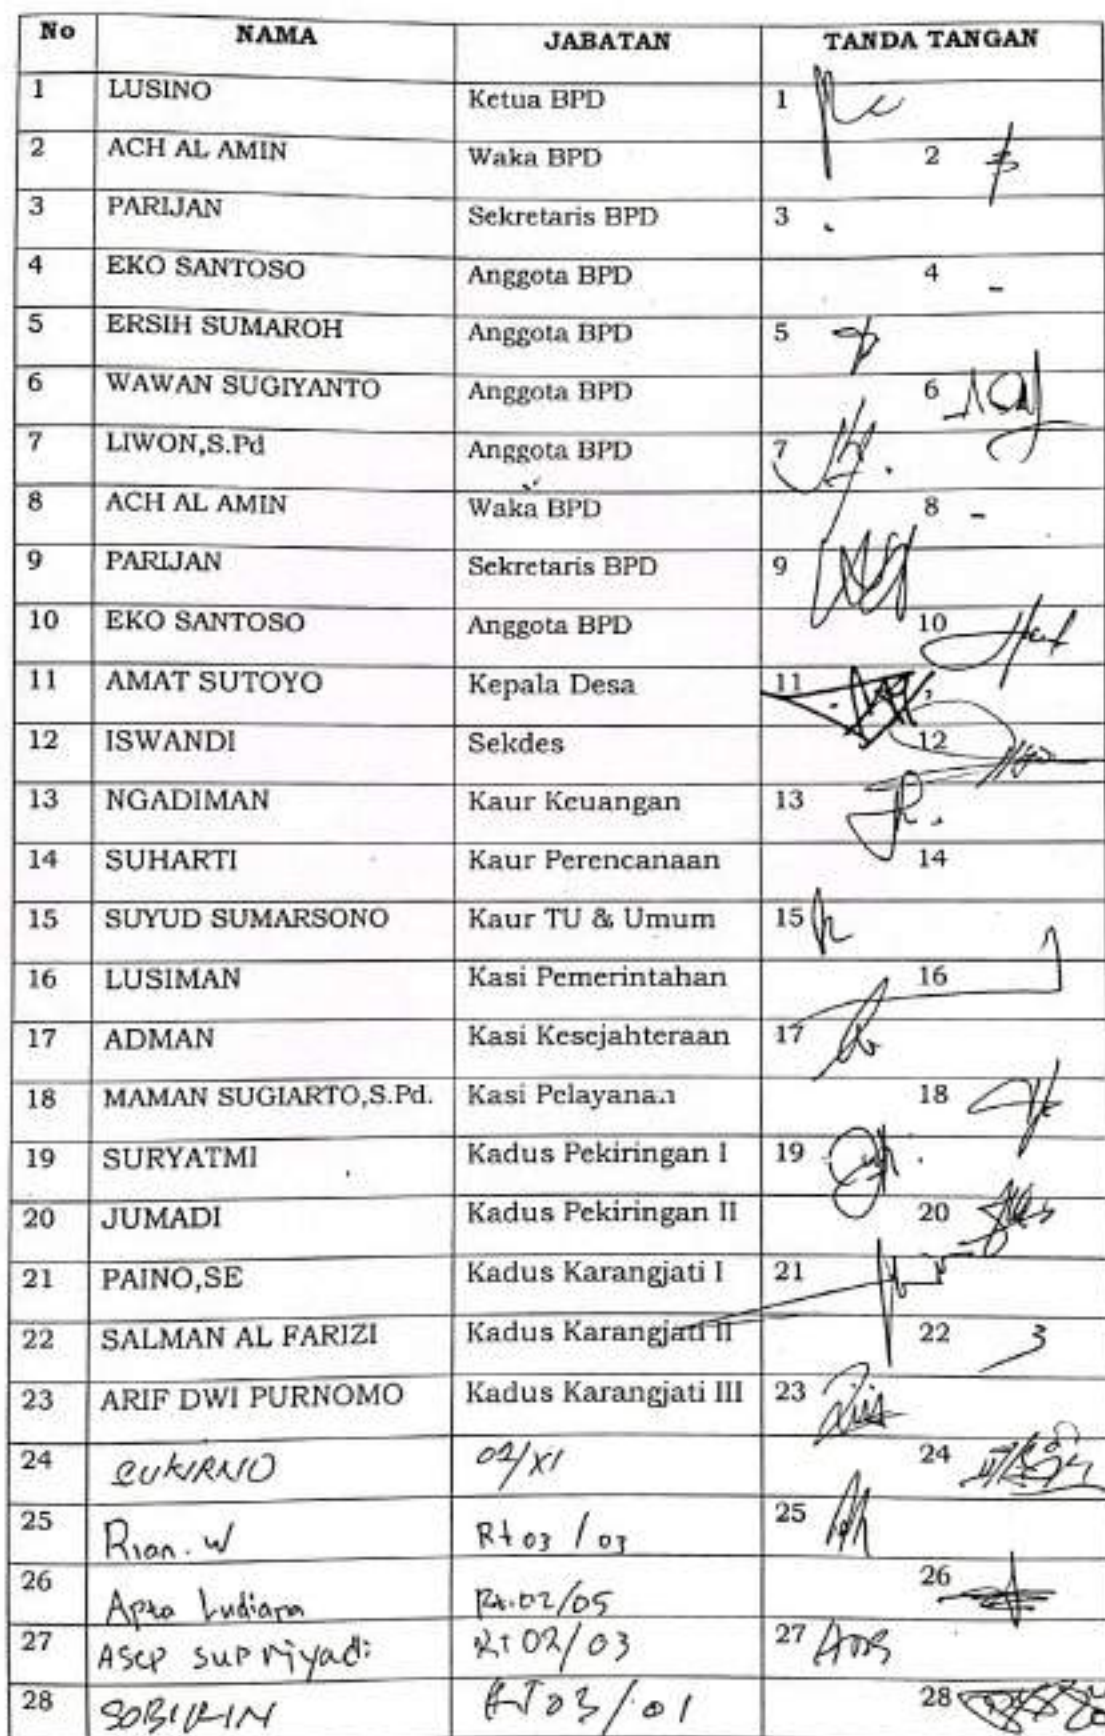 No NAMA JABATAN TANDA TANGAN
1 LUSINO Ketua BPD 1
2 ACH AL AMIN Waka BPD 2
3 PARIJAN Sekretaris BPD 3
4 EKO SANTOSO Anggota BPD 4 -
5 ERSIH SUMAROH Anggota BPD 5
6 WAWAN SUGIYANTO Anggota BPD 6
7 LIWON,S.Pd Anggota BPD 7
8 ACH AL AMIN Waka BPD 8 -
9 PARIJAN Sekretaris BPD 9
10 EKO SANTOSO Anggota BPD 10
11 AMAT SUTOYO Kepala Desa 11
12 ISWANDI Sekdes 12
13 NGADIMAN Kaur Keuangan 13
14 SUHARTI Kaur Perencanaan 14
15 SUYUD SUMARSONO Kaur TU & Umum 15
16 LUSIMAN Kasi Pemerintahan 16
17 ADMAN Kasi Kesejahteraan 17
18 MAMAN SUGIARTO,S.Pd. Kasi Pelayanan 18
19 SURYATMI Kadus Pekiringan I 19
20 JUMADI Kadus Pekiringan II 20
21 PAINO,SE Kadus Karangjati I 21
22 SALMAN AL FARIZI Kadus Karangjati II 22
23 ARIF DWI PURNOMO Kadus Karangjati III 23
24 SUKIRNO 24
25 Rian. W Rt 03 / 03 25
26 Rt.02/05 26
27 Asep supriyadi Rt 02/03 27
28 SOBIKIN RT 03/01 28